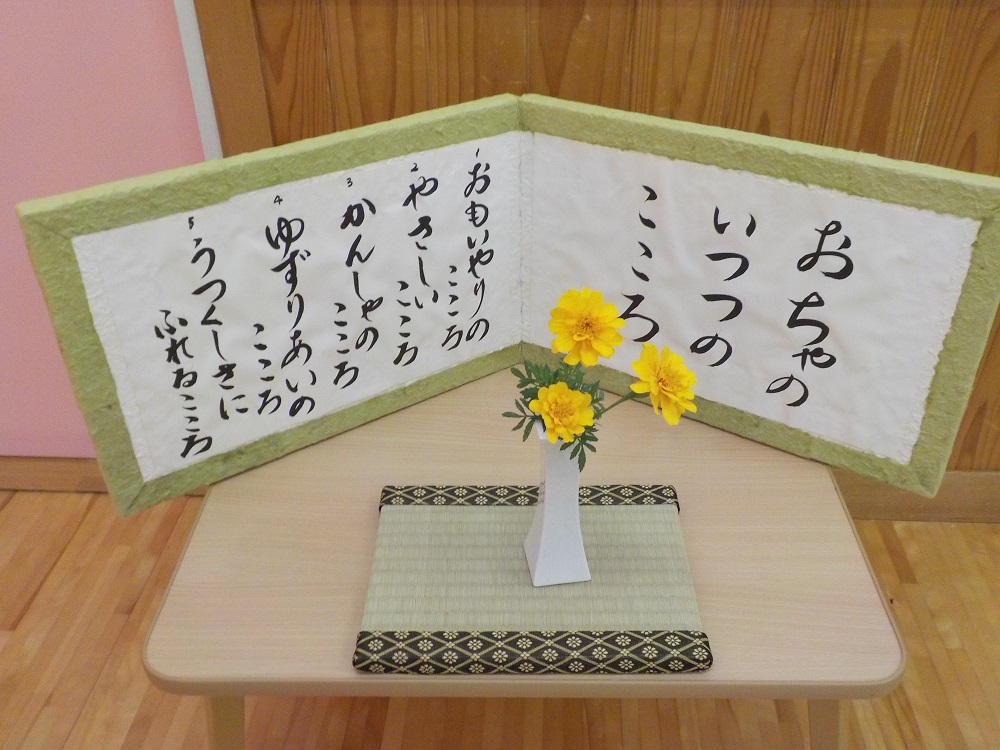 おちゃの
いつつの
こころ
1 おもいやりの
こころ
2 やさしい
こころ
3 かんしゃの
こころ
4 ゆずりあいの
こころ
5 うつくしさに
ふれるこころ